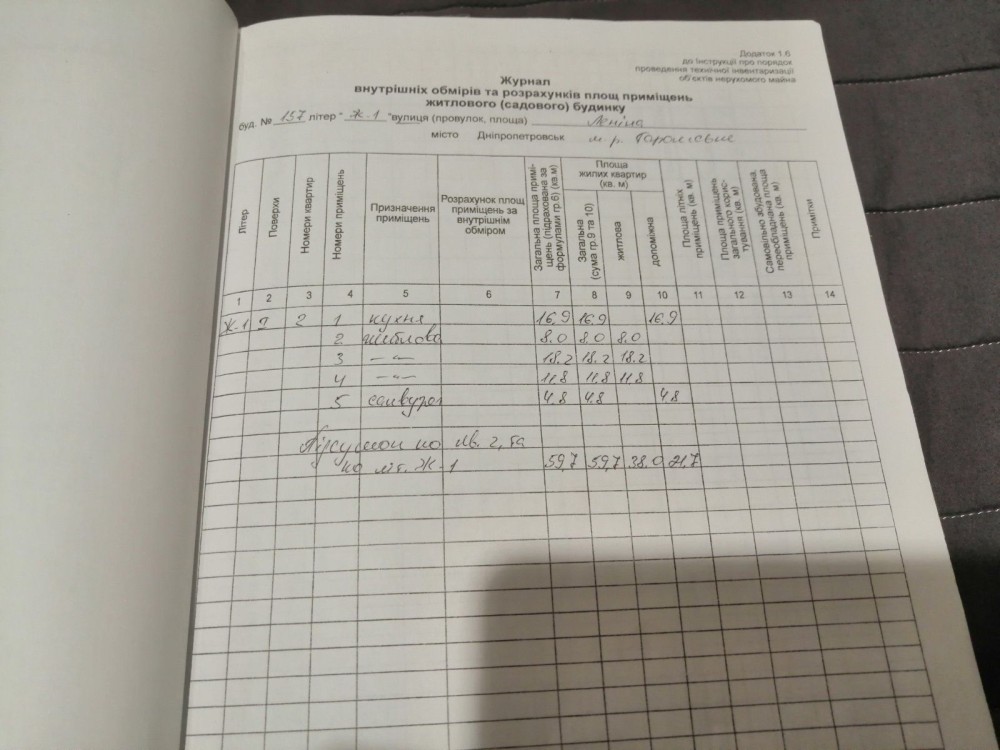 Додаток 1.6
до Інструкції про порядок
проведення технічної інвентаризації
об'єктів нерухомого майна
Журнал
внутрішніх обмірів та розрахунків площ приміщень
житлового (садового) будинку
буд. № 157 літер " Ж-1 "вулиця (провулок, площа) Леніна
місто Дніпропетровськ м. р.
Літер
Поверхи
Номери квартир
Номери приміщень
Призначення приміщень
Розрахунок площ приміщень за внутрішнім обміром
Загальна площа приміщень (підрахована за формулами гр.6) (кв.м)
Площа жилих квартир (кв. м)
Загальна (сума гр.9 та 10)
житлова
допоміжна
Площа літніх приміщень (кв. м)
Площа приміщень загального користування (кв. м)
Самовільно збудована, переобладнана площа приміщень (кв. м)
Примітки
1 2 3 4 5 6 7 8 9 10 11 12 13 14
Ж-1 2 2 1 кухня 16.9 16.9 16.9
2 житлова 8.0 8.0 8.0
3 –"– 18.2 18.2 18.2
4 –"– 11.8 11.8 11.8
5 санвузол 4.8 4.8 4.8
Підсумок по кв. 2, та
по літ. Ж-1 59,7 59,7 38.0 21.7